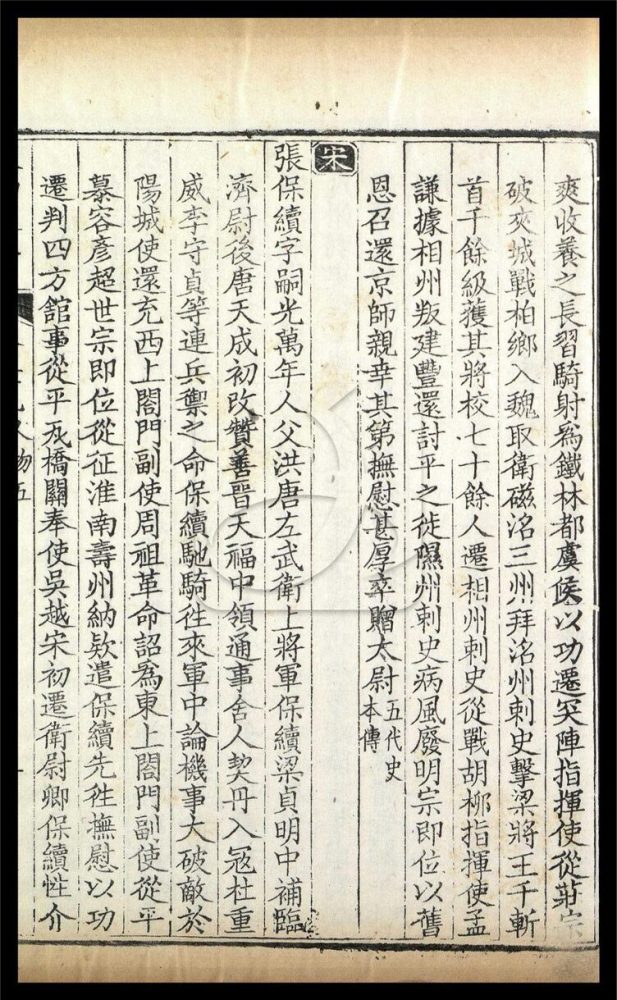 爽收養之長習騎射爲鐵林都虞候以功遷突陣指揮使從莊宗
破夾城戰柏鄉入魏取衛磁洺三州拜洺州刺史擊梁將王千斬
首千餘級獲其將校七十餘人遷相州刺史從戰胡柳指揮使孟
謙據相州叛建豐還討平之徙隰州刺史病風廢明宗即位以舊
恩召還京師親幸其第撫慰甚厚卒贈太尉五代史本傳
宋
張保續字嗣光萬年人父洪唐左武衛上將軍保續梁貞明中補臨
濟尉後唐天成初改贊善晉天福中領通事舍人契丹入冦杜重
威李守貞等連兵禦之命保續馳騎徃來軍中論機事大破敵於
陽城使還充西上閤門副使周祖革命詔爲東上閤門副使從平
慕容彥超世宗即位從征淮南壽州納欵遣保續先徃撫慰以功
遷判四方館事從平瓦橋關奉使吳越宋初遷衛尉卿保續性介
人物五